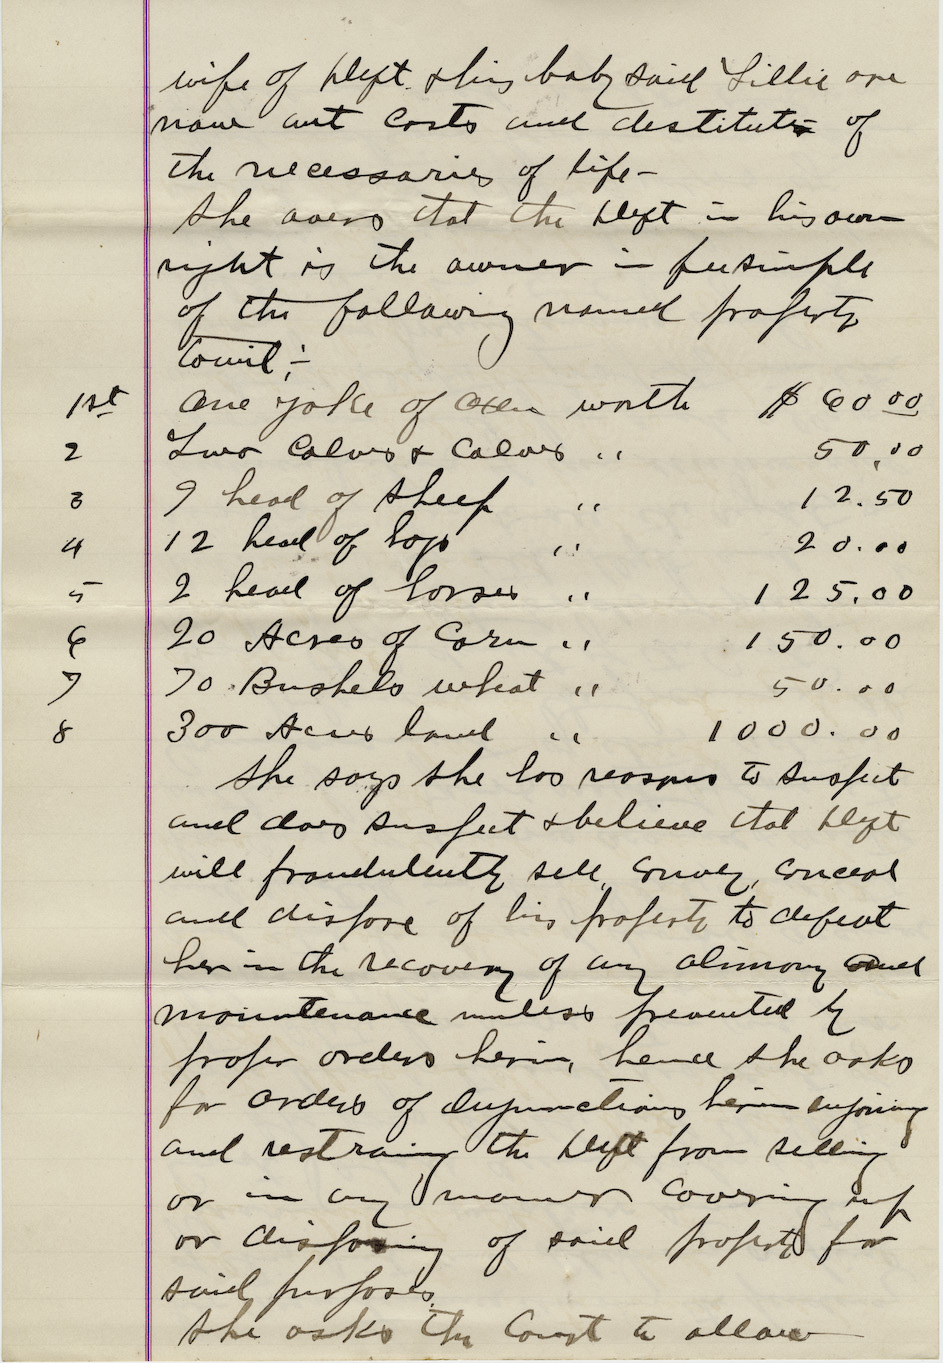 wife of Deft. & his baby said Lillie are
now out casts and destitute of
the necessaries of life -
She avers that the Deft in his own
right is the owner in fee simple
of the following named property
towit; -
1st One yoke of oxen worth $60.00
2 Two Calves & Calves " 50.00
3 9 head of sheep " 12.50
4 12 head of hogs " 20.00
5 2 head of horses " 125.00
6 20 Acres of Corn " 150.00
7 70 Bushels wheat " 50.00
8 300 Acres land " 1000.00
She says she has reasons to suspect
and does suspect & believe that Deft
will fraudulently sell, convey, conceal
and dispose of his property to defeat
her in the recovery of any alimony and
maintenance unless prevented by
proper orders herein, hence she asks
for orders of Injunctions herein enjoining
and restraining the Deft from selling
or in any manner covering up
or disposing of said property for
said purposes.
She asks the Court to allow